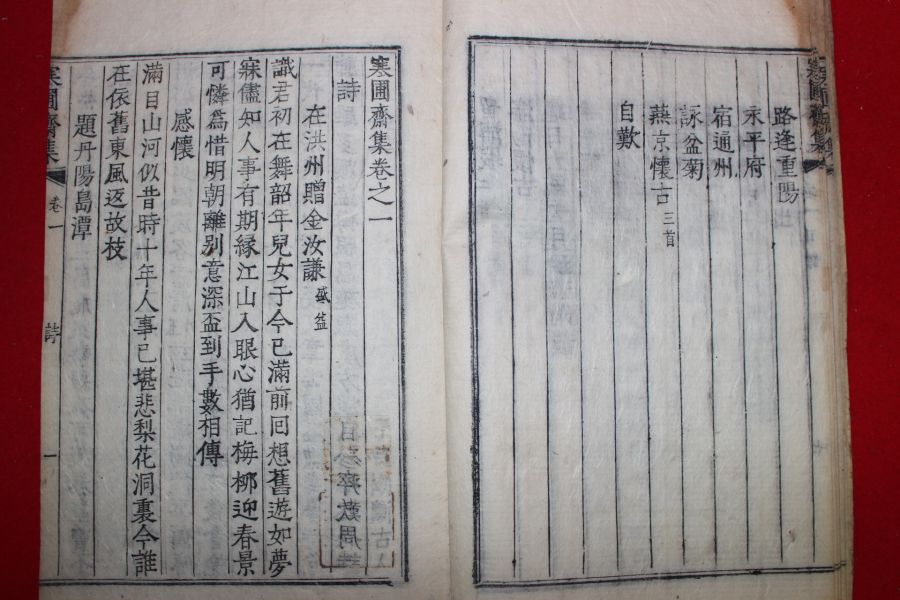 路逢重陽
永平府
宿通州
詠盆菊
燕京懷古 三首
自歎
寒圃齋集卷之一
詩
在洪州贈金汝謙 盛益
識君初在舞韶年兒女于今已滿前回想舊遊如夢
寐儘知人事有期緣江山入眼心猶記梅柳迎春景
可憐爲惜明朝離別意深盃到手數相傳
感懷
滿目山河似昔時十年人事已堪悲梨花洞裏今誰
在依舊東風返故枝
題丹陽島潭
寒圃齋集 卷一 詩 一